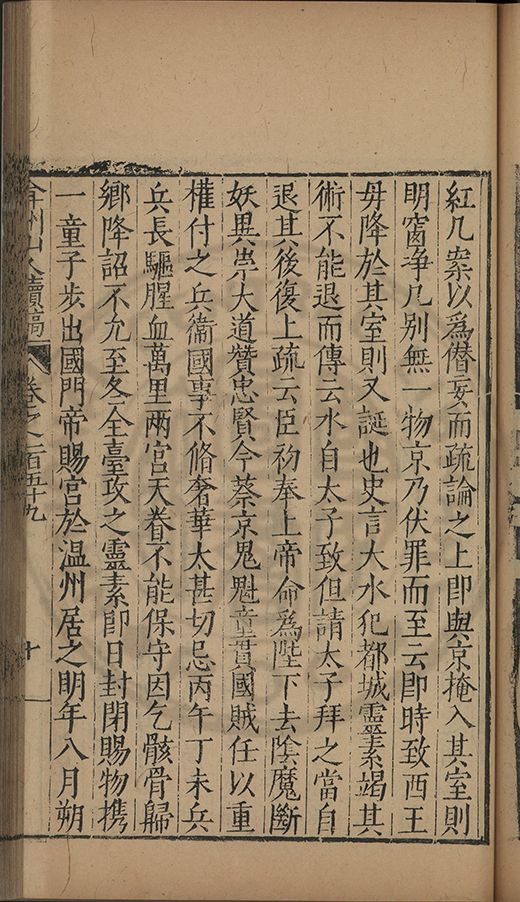 紅几案以爲僭妄而疏論之上即與京掩入其室則
明窗净几别無一物京乃伏罪而至云即時致西王
母降於其室則又誕也史言大水犯都城靈素竭其
術不能退而傳云水自太子致但請太子拜之當自
退其後復上疏云臣初奉上帝命爲陛下去陰魔斷
妖異崇大道贊忠賢今蔡京鬼魁童貫國賊任以重
權付之兵衞國事不脩奢華太甚切忌丙午丁未兵
兵長驅腥血萬里兩宮天眷不能保守因乞骸骨歸
鄉降詔不允至冬全臺攻之靈素即日封閉賜物携
一童子步出國門帝賜宮於温州居之明年八月朔
弇州山人續稿 卷之一百五十九 十